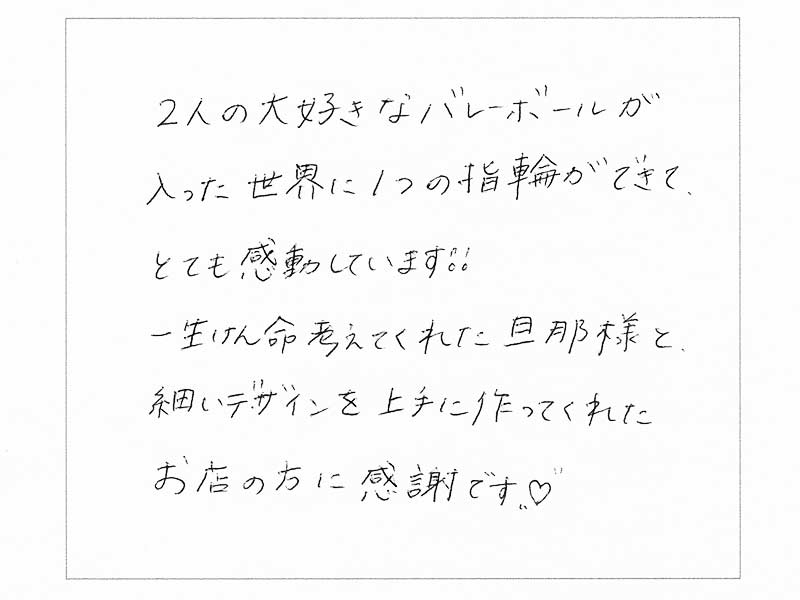 2人の大好きなバレーボールが
入った世界に1つの指輪ができて、
とても感動しています!!
一生けん命考えてくれた旦那様と、
細いデザインを上手に作ってくれた
お店の方に感謝です♡